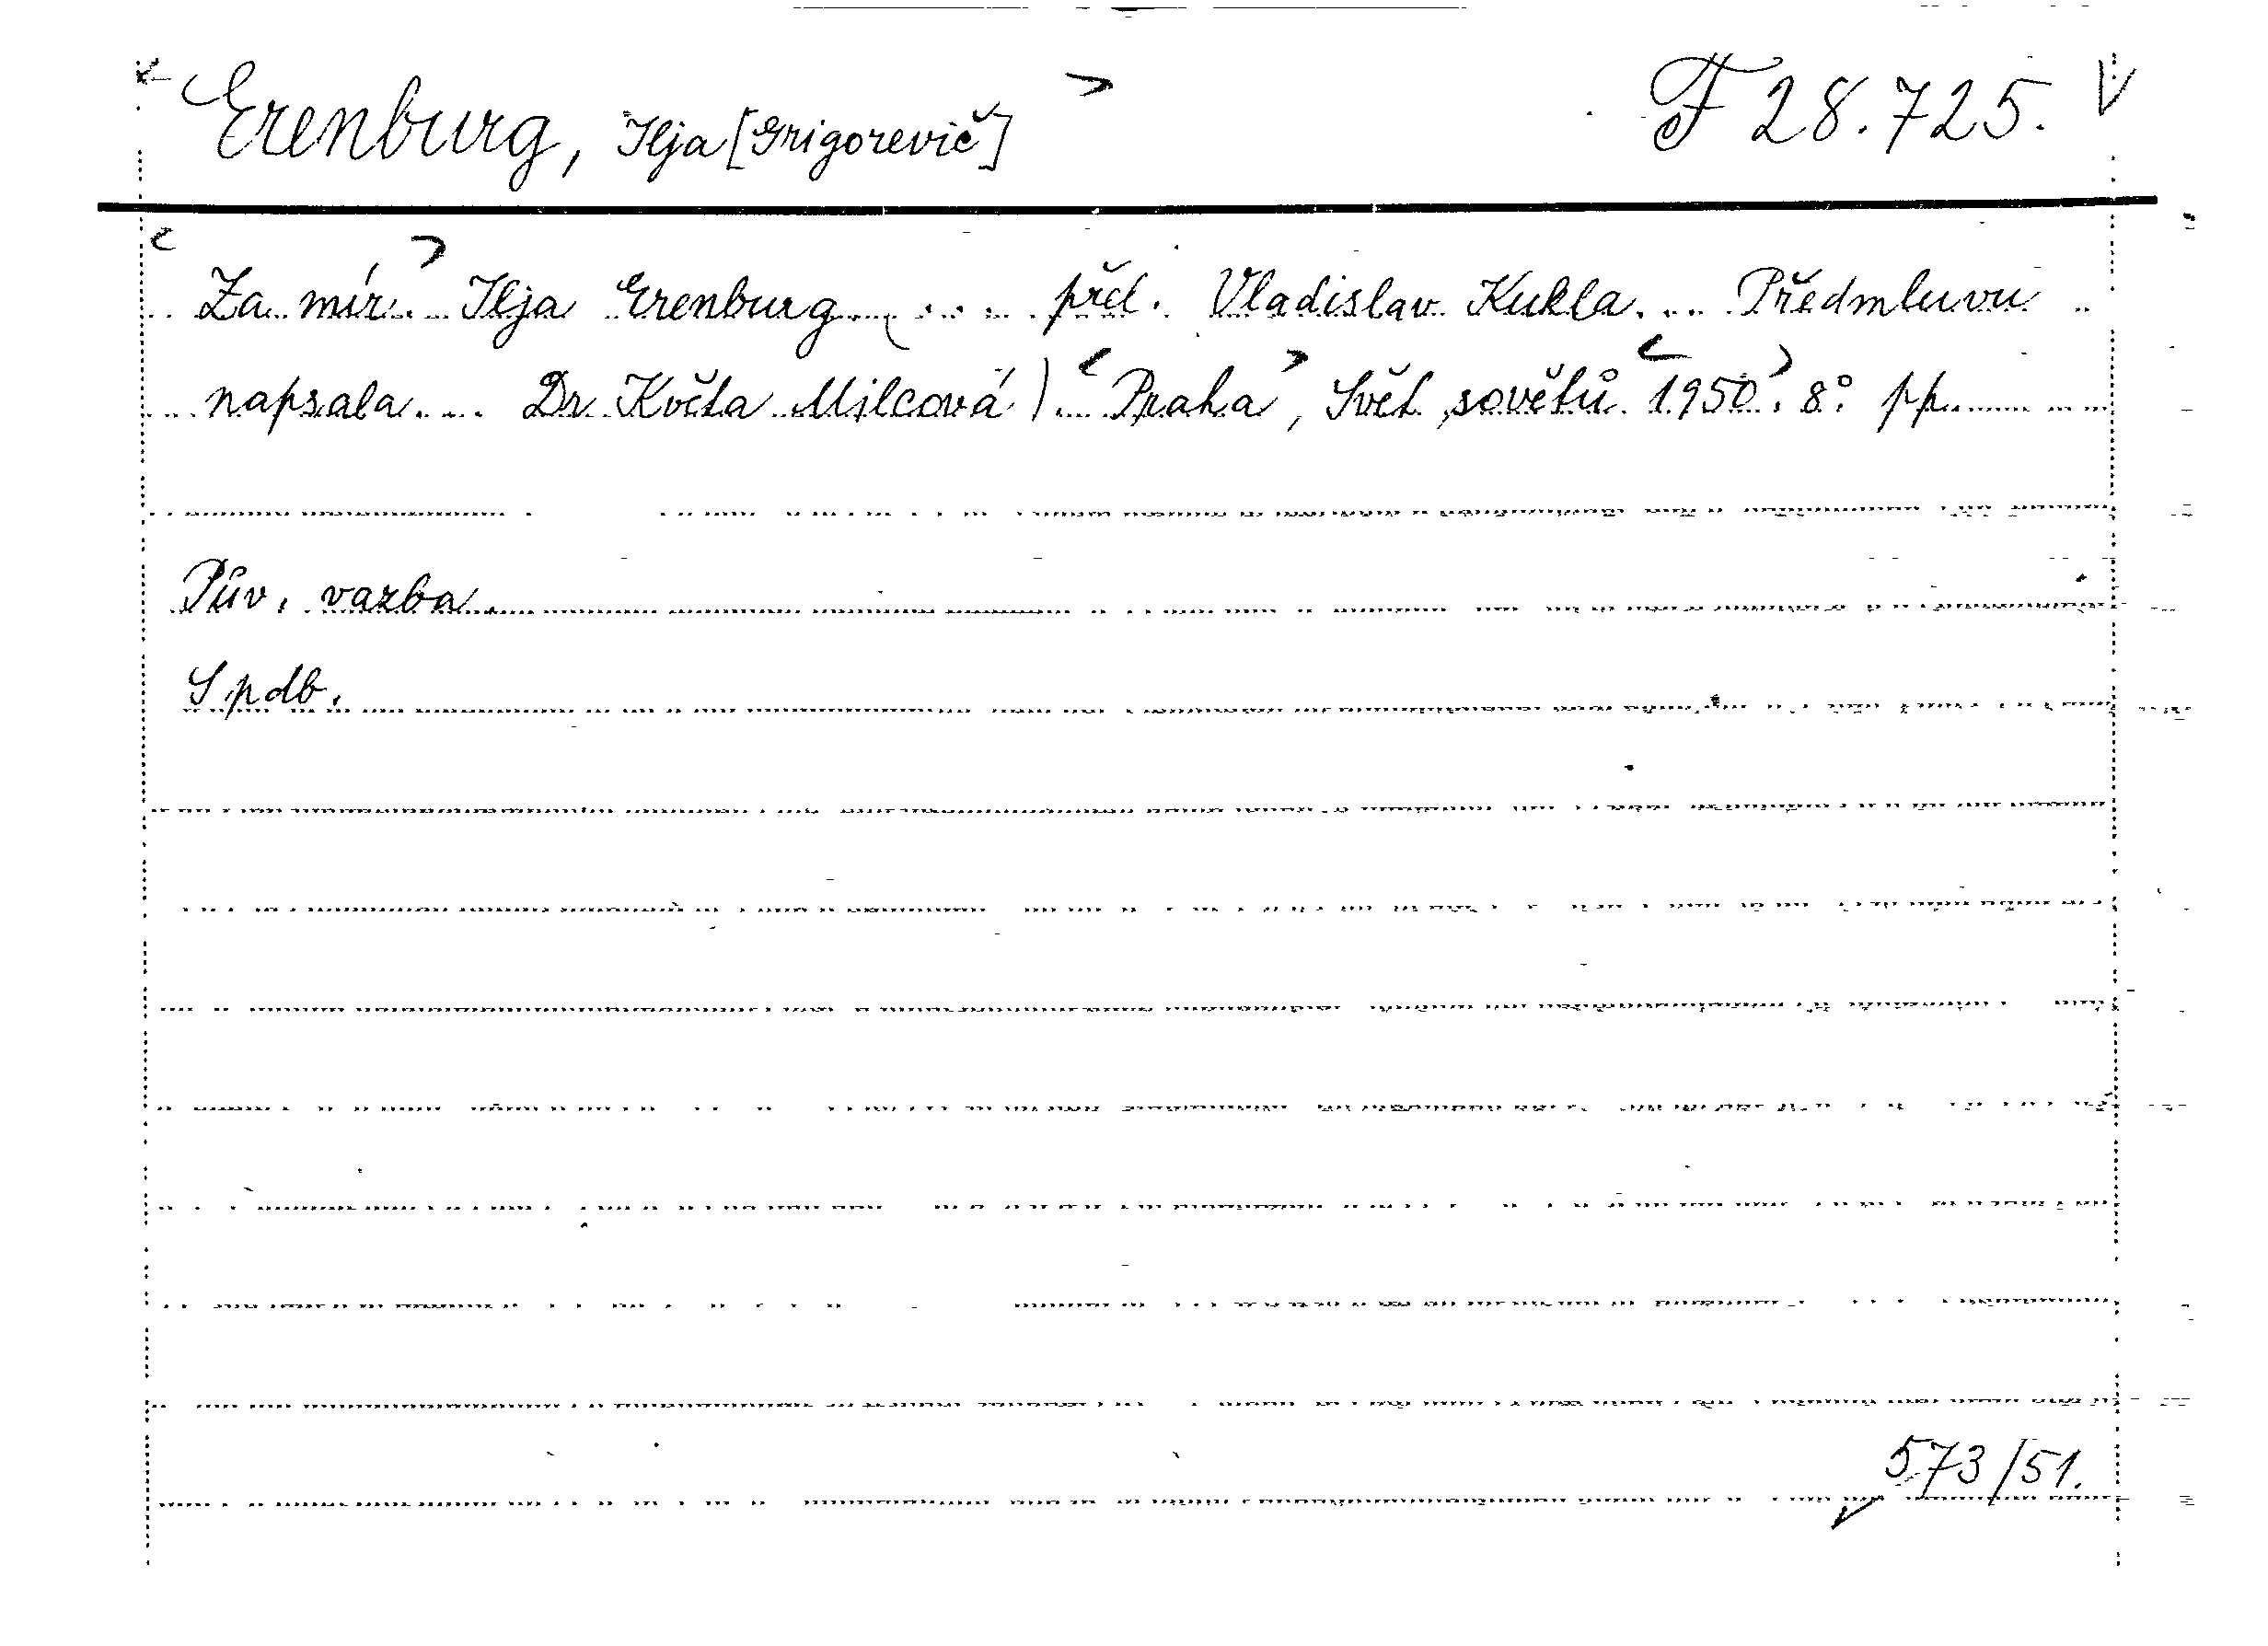 Erenburg, Ilja [Grigorevič] F 28.725.
Za mír. Ilja Erenburg. (... přel. Vladislav Kukla. ... Předmluvu
napsala ... Dr Květa Milcová). Praha, Svět sovětů 1950. 8° pp.
Pův. vazba.
S pdb.
573/51.